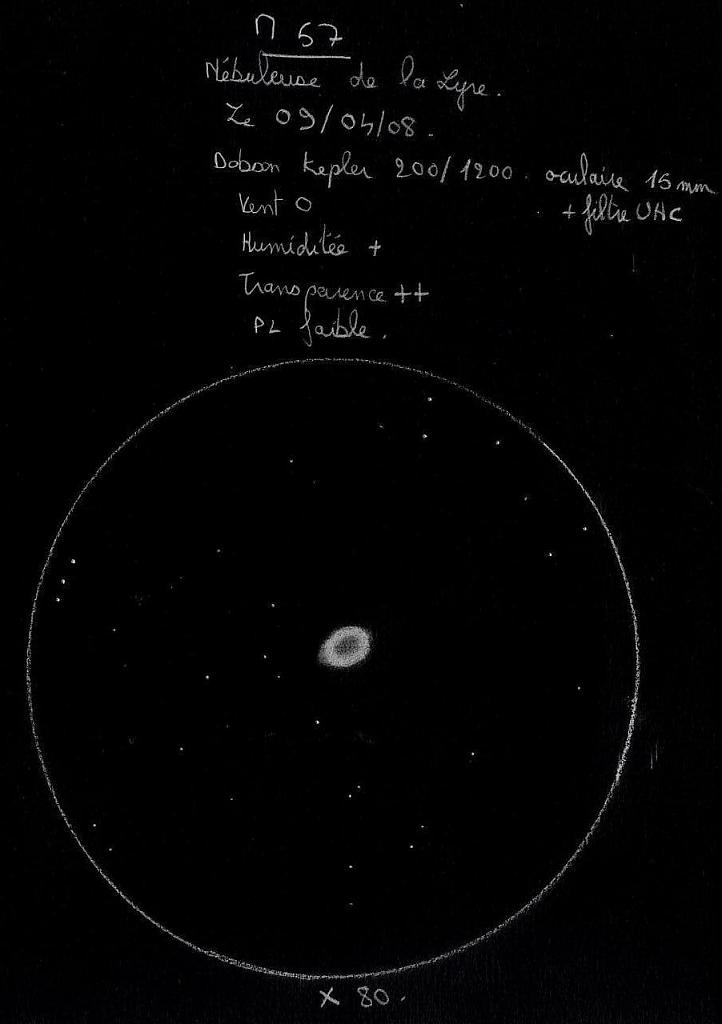 M 57
Nébuleuse de la Lyre.
Le 09/04/08.
Dobson Kepler 200/1200. oculaire 15 mm
Vent 0 + filtre UHC
Humiditée +
Transparence ++
PL faible.
x 80.